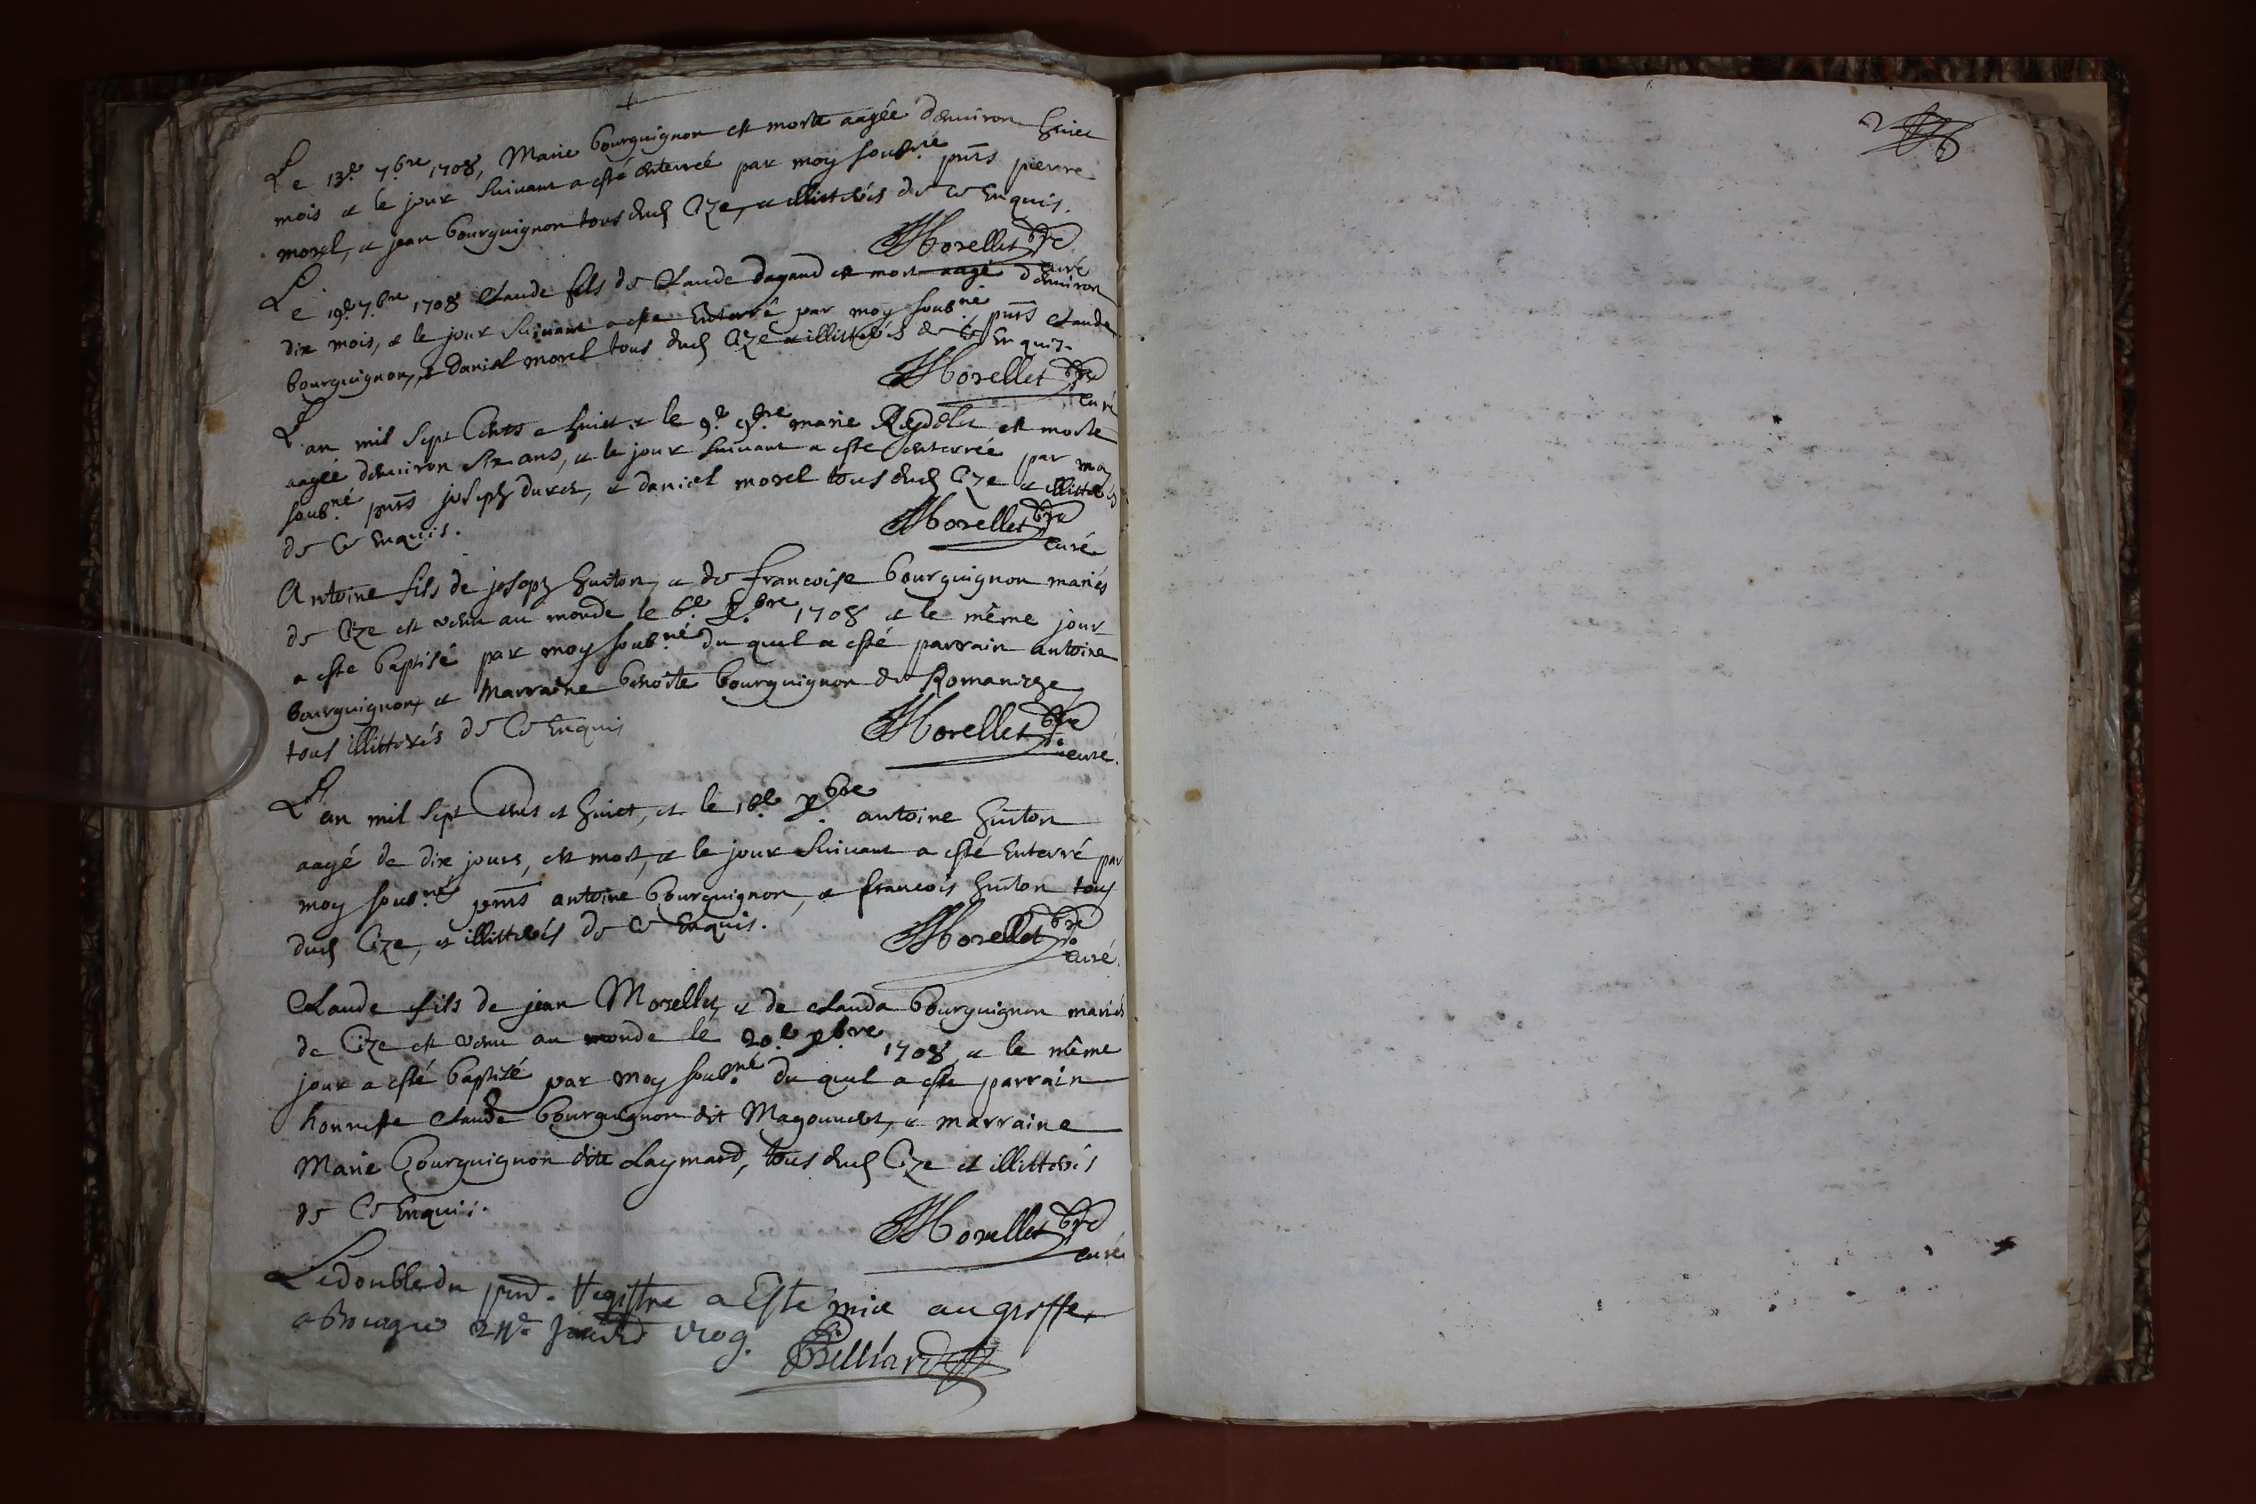 Le 13e 7.bre 1708, Marie bourguignon est morte aagée d'environ huict
mois et le jour suivant a esté enterrée par moy soub.né pnts pierre
morel, et jean bourguignon tous dud Cize, et illitterés de ce enquis.
Morellet pbre
curé
Le 19e 7.bre 1708 Claude fils de Claude dagand est mort aagé d'environ
dix mois, et le jour suivant a esté enterré par moy soub.né pnts Claude
bourguignon, et Daniel morel tous dud Cize et illitterés de ce enquis.
Morellet pbre
curé
L'an mil sept cents et huict et le 9e 9.bre marie Reydelet est morte
aagée d'environ six ans, et le jour suivant a esté enterrée par moy
soub.né pnts joseph duret, et daniel morel tous dud Cize et illitterés
de ce enquis.
Morellet pbre
curé
Antoine fils de joseph huiton, et de francoise bourguignon mariés
de Cize est venu au monde le 6e X.bre 1708 et le même jour
a esté baptisé par moy soub.né du quel a esté parrain antoine
bourguignon, et Marraine benoite bourguignon de Romaneche
tous illitterés de ce enquis
Morellet pbre
curé.
L'an mil sept cents et huict, et le 16e X.bre antoine huiton
aagé de dix jours, est mort, et le jour suivant a esté enterré par
moy soub.né pnts antoine bourguignon, et francois huiton tous
dud Cize, et illitterés de ce enquis.
Morellet pbre
curé.
Claude fils de jean Morellet, et de clauda bourguignon mariés
de Cize est venu au monde le 20.e X.bre 1708, et le même
jour a esté baptizé par moy soub.né du quel a esté parrain
honneste Claude bourguignon dit Magounet, et marraine
Marie bourguignon ditte Laymard, tous dud Cize et illitterés
de ce enquis.
Morellet pbre
curé
Le double du pnt. Registre a Esté mis au greffe
a Bourg le 1709.
Billiard